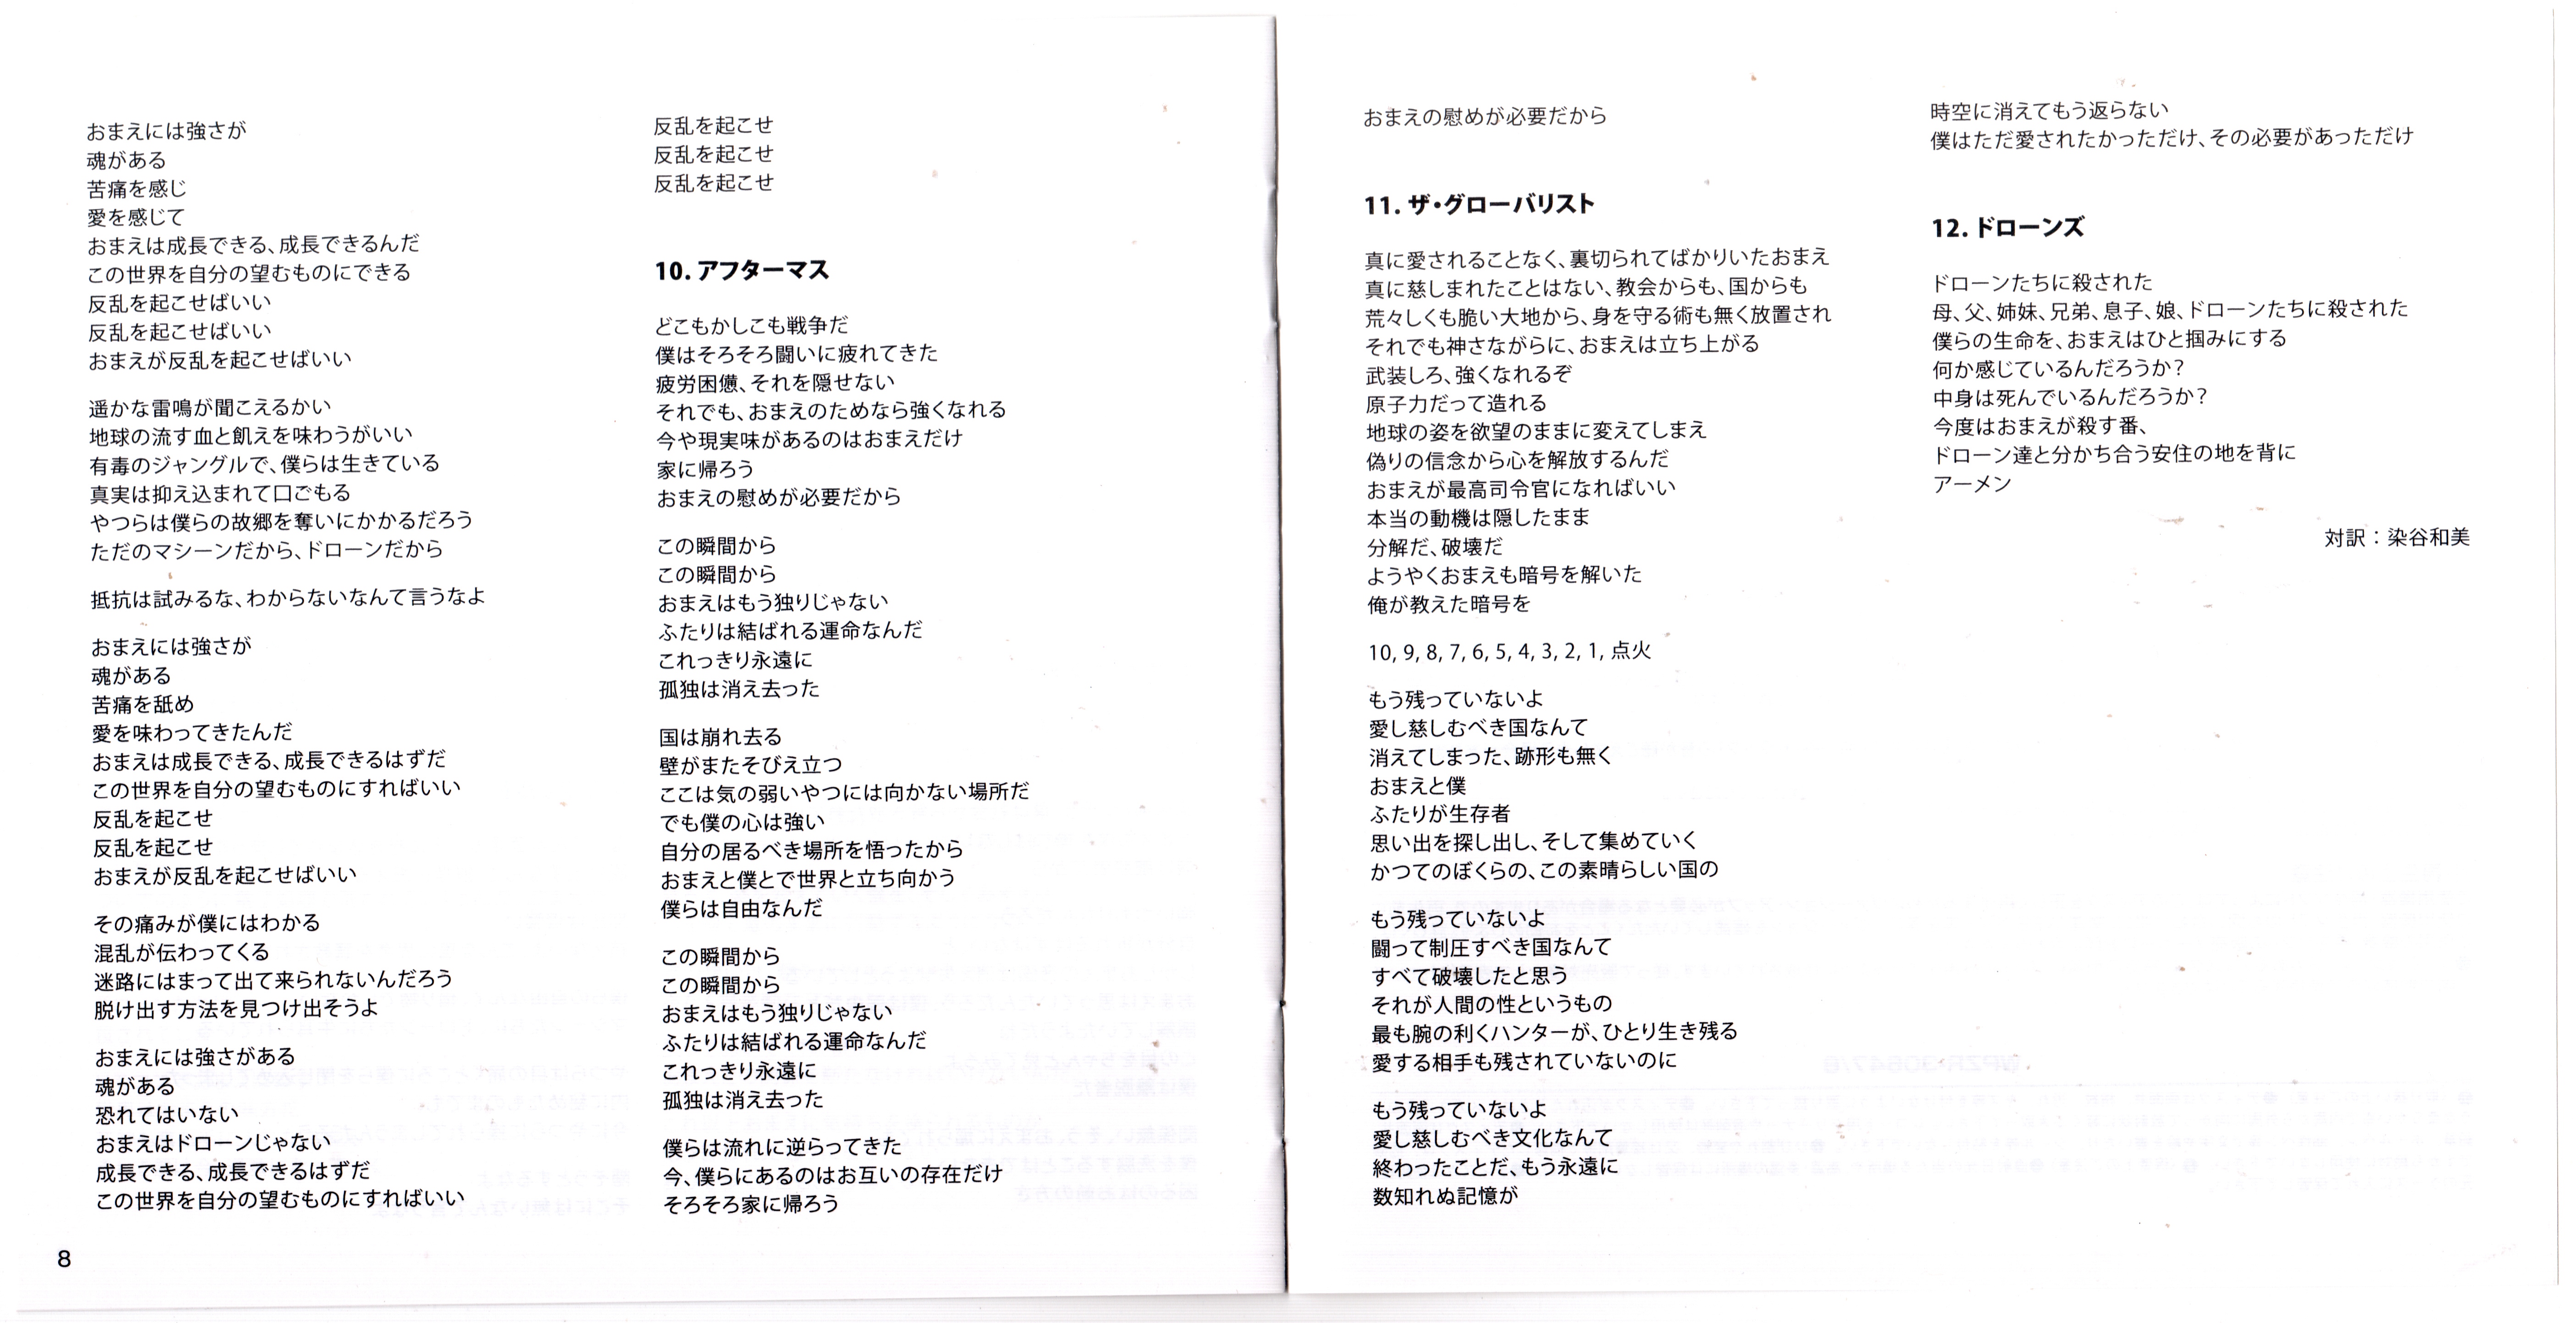 おまえには強さが
魂がある
苦痛を感じ
愛を感じて
おまえは成長できる、成長できるんだ
この世界を自分の望むものにできる
反乱を起こせばいい
反乱を起こせばいい
おまえが反乱を起こせばいい
遥かな雷鳴が聞こえるかい
地球の流す血と飢えを味わうがいい
有毒のジャングルで、僕らは生きている
真実は抑え込まれて口ごもる
やつらは僕らの故郷を奪いにかかるだろう
ただのマシーンだから、ドローンだから
抵抗は試みるな、わからないなんて言うなよ
おまえには強さが
魂がある
苦痛を舐め
愛を味わってきたんだ
おまえは成長できる、成長できるはずだ
この世界を自分の望むものにすればいい
反乱を起こせ
反乱を起こせ
おまえが反乱を起こせばいい
その痛みが僕にはわかる
混乱が伝わってくる
迷路にはまって出て来られないんだろう
脱け出す方法を見つけ出そうよ
おまえには強さがある
魂がある
恐れてはいない
おまえはドローンじゃない
成長できる、成長できるはずだ
この世界を自分の望むものにすればいい
8
反乱を起こせ
反乱を起こせ
反乱を起こせ
10. アフターマス
どこもかしこも戦争だ
僕はそろそろ闘いに疲れてきた
疲労困憊、それを隠せない
それでも、おまえのためなら強くなれる
今や現実味があるのはおまえだけ
家に帰ろう
おまえの慰めが必要だから
この瞬間から
この瞬間から
おまえはもう独りじゃない
ふたりは結ばれる運命なんだ
これっきり永遠に
孤独は消え去った
国は崩れ去る
壁がまたそびえ立つ
ここは気の弱いやつには向かない場所だ
でも僕の心は強い
自分の居るべき場所を悟ったから
おまえと僕とで世界と立ち向かう
僕らは自由なんだ
この瞬間から
この瞬間から
おまえはもう独りじゃない
ふたりは結ばれる運命なんだ
これっきり永遠に
孤独は消え去った
僕らは流れに逆らってきた
今、僕らにあるのはお互いの存在だけ
そろそろ家に帰ろう
おまえの慰めが必要だから
11. ザ・グローバリスト
真に愛されることなく、裏切られてばかりいたおまえ
真に慈しまれたことはない、教会からも、国からも
荒々しくも脆い大地から、身を守る術も無く放置され
それでも神さながらに、おまえは立ち上がる
武装しろ、強くなれるぞ
原子力だって造れる
地球の姿を欲望のままに変えてしまえ
偽りの信念から心を解放するんだ
おまえが最高司令官になればいい
本当の動機は隠したまま
分解だ、破壊だ
ようやくおまえも暗号を解いた
俺が教えた暗号を
10, 9, 8, 7, 6, 5, 4, 3, 2, 1, 点火
もう残っていないよ
愛し慈しむべき国なんて
消えてしまった、跡形も無く
おまえと僕
ふたりが生存者
思い出を探し出し、そして集めていく
かつてのぼくらの、この素晴らしい国の
もう残っていないよ
闘って制圧すべき国なんて
すべて破壊したと思う
それが人間の性というもの
最も腕の利くハンターが、ひとり生き残る
愛する相手も残されていないのに
もう残っていないよ
愛し慈しむべき文化なんて
終わったことだ、もう永遠に
数知れぬ記憶が
時空に消えてもう返らない
僕はただ愛されたかっただけ、その必要があっただけ
12. ドローンズ
ドローンたちに殺された
母、父、姉妹、兄弟、息子、娘、ドローンたちに殺された
僕らの生命を、おまえはひと掴みにする
何か感じているんだろうか？
中身は死んでいるんだろうか？
今度はおまえが殺す番、
ドローン達と分かち合う安住の地を背に
アーメン
対訳：染谷和美